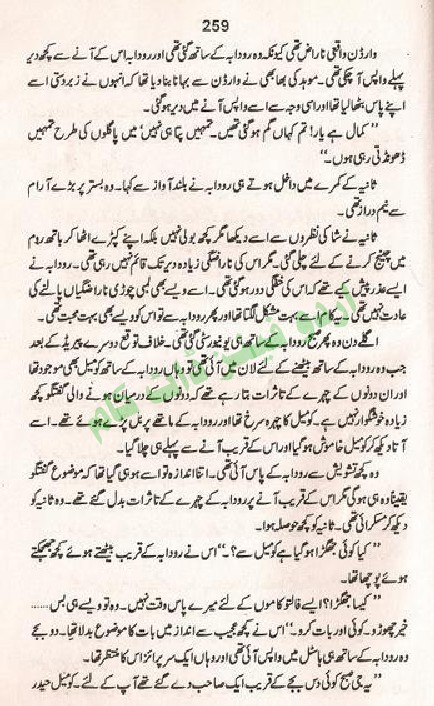 259
وارڈن واقعی ناراض تھی کیونکہ وہ رودابہ کے ساتھ گئی تھی اور رودابہ اس کے آنے سے کچھ دیر
پہلے واپس آ چکی تھی۔ موہد کی بھابھی نے وارڈن سے بہانا بنا دیا تھا کہ انہوں نے زبردستی اسے
اپنے پاس بٹھا لیا تھا اور اسی وجہ سے اسے واپس آنے میں دیر ہو گئی۔
"کمال ہے یار! تم کہاں گم ہو گئی تھیں۔ تمہیں پتا ہی نہیں' میں پاگلوں کی طرح تمہیں
ڈھونڈتی رہی ہوں۔"
ثانیہ کے کمرے میں داخل ہوتے ہی رودابہ نے بلند آواز سے کہا۔ وہ بستر پر بڑے آرام
سے نیم دراز تھی۔
ثانیہ نے شاکی نظروں سے اسے دیکھا مگر کچھ بولی نہیں بلکہ اپنے کپڑے اٹھا کر باتھ روم
میں چینج کرنے کے لئے چلی گئی۔ مگر اس کی ناراضگی زیادہ دیر تک قائم نہیں رہی تھی۔ رودابہ نے
ایسے عذر پیش کیے تھے کہ اس کی خفگی دور ہو گئی تھی۔ اسے ویسے بھی لمبی چوڑی ناراضگیاں پالنے کی
عادت نہیں تھی۔ یہ کام اسے بہت مشکل لگتا تھا اور پھر رودابہ سے تو اس کو ویسے بھی بہت محبت تھی۔
اگلے دن وہ پھر صبح رودابہ کے ساتھ ہی یونیورسٹی گئی تھی۔ خلاف توقع دوسرے پیریڈ کے بعد
جب وہ رودابہ کے ساتھ بیٹھنے کے لئے لان میں آئی تھی تو وہاں رودابہ کے ساتھ کومیل بھی موجود تھا
اور ان دونوں کے چہرے کے تاثرات بتا رہے تھے کہ دونوں کے درمیان ہونے والی گفتگو کچھ
زیادہ خوشگوار نہیں ہے۔ کومیل کا چہرہ سرخ تھا اور رودابہ کے ماتھے پر بل پڑے ہوئے تھے۔ اسے
آتا دیکھ کر کومیل خاموش ہو گیا اور اس کے قریب آنے سے پہلے ہی چلا گیا۔
وہ کچھ تشویش سے رودابہ کے پاس آئی تھی۔ اتنا اندازہ تو اسے ہو ہی گیا تھا کہ موضوع گفتگو
یقیناً وہ ہی ہو گی مگر اس کے قریب آنے پر رودابہ کے چہرے کے تاثرات بدل گئے تھے۔ وہ ثانیہ کو
دیکھ کر مسکرائی تھی۔ ثانیہ کو کچھ حوصلہ ہوا۔
"کیا کوئی جھگڑا ہو گیا ہے کومیل سے؟۔" اس نے رودابہ کے قریب بیٹھتے ہوئے کچھ جھجکتے
ہوئے پوچھا تھا۔
"کیسا جھگڑا؟ ایسے فالتو کاموں کے لئے میرے پاس وقت نہیں۔ وہ تو ویسے ہی بس......
خیر چھوڑو۔ کوئی اور بات کرو۔" اس نے کچھ عجیب سے انداز میں بات کا موضوع بدلا تھا۔ دو بجے
وہ رودابہ کے ساتھ ہی ہاسٹل میں واپس آئی تھی اور وہاں ایک سرپرائز اس کا منتظر تھا۔
"یہ جی صبح کوئی دس بجے کے قریب ایک صاحب دے گئے تھے آپ کے لئے۔ کومیل حیدر